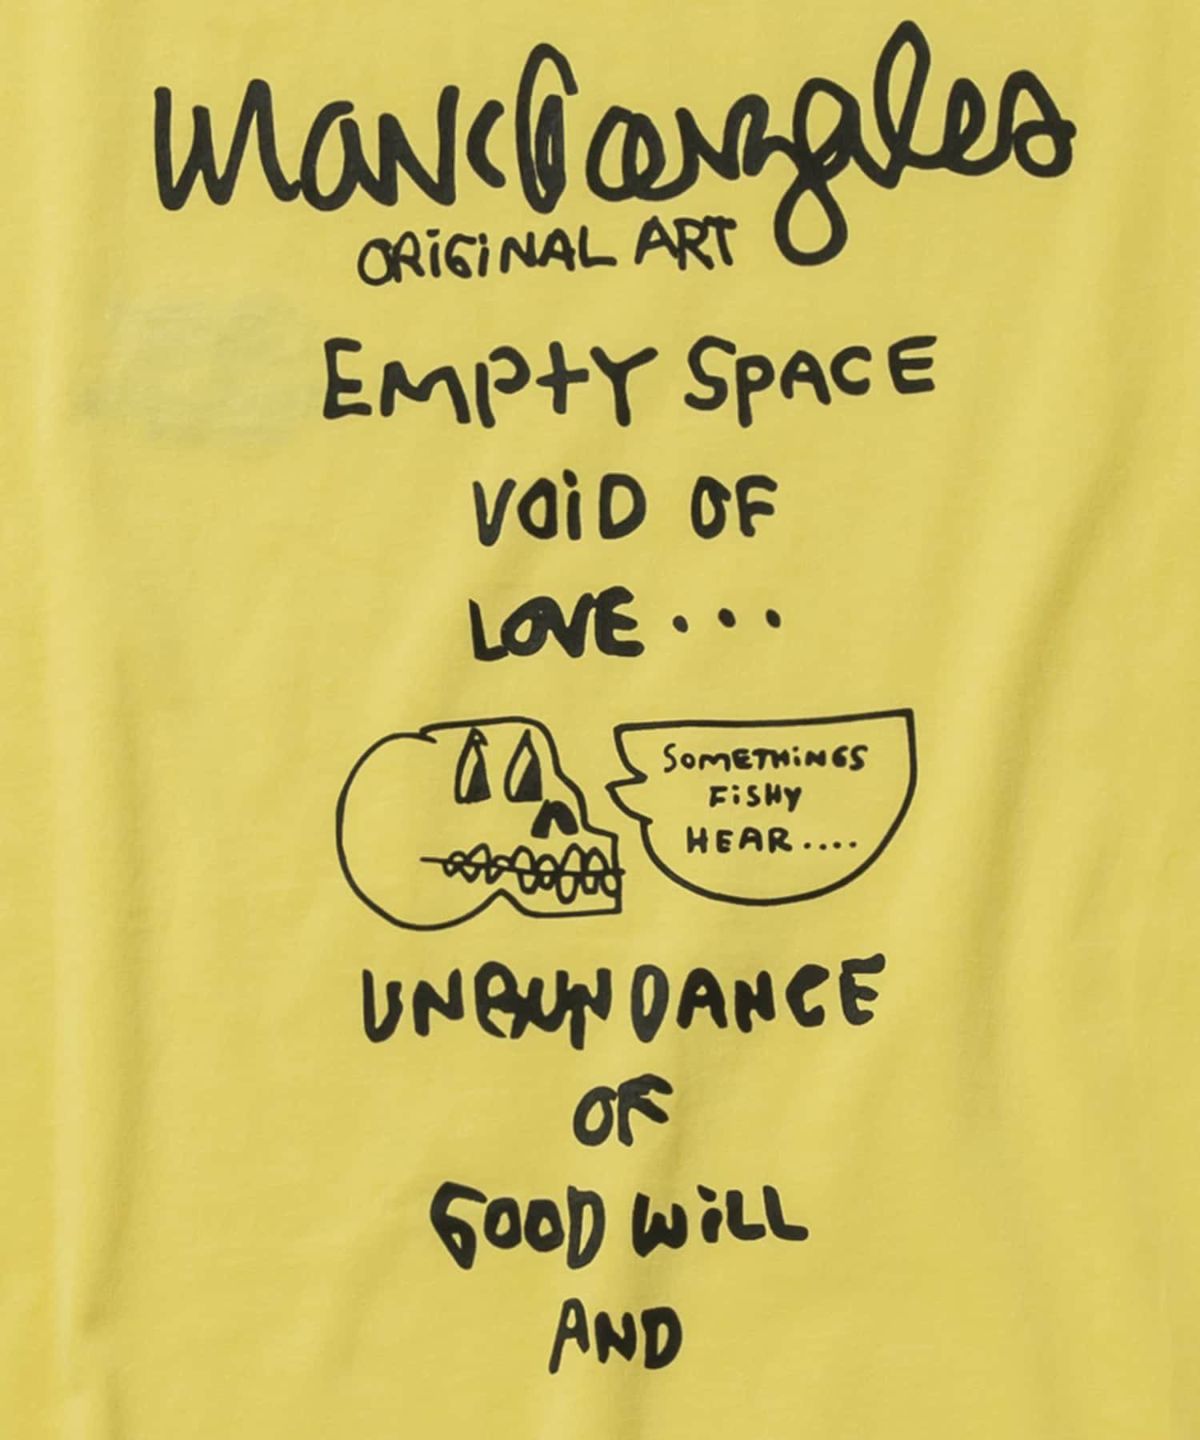 Mark Gonzales
ORiGiNAL ART
EMPtY SPACE
VOiD OF
LOVE...
SOMETHiNGS
FiSHY
HEAR....
UNBUNDANCE
OF
GOOD WiLL
AND